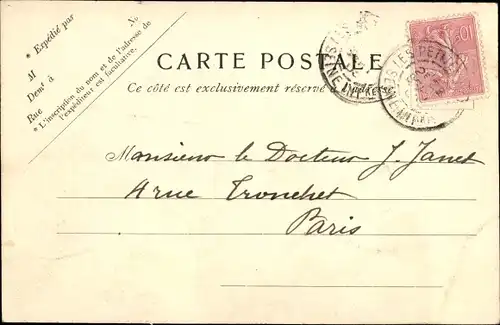 * Expédié par
No
M
Demt à
Rue
* L'inscription du nom et de l'adresse de
l'expéditeur est facultative.
CARTE POSTALE
Ce côté est exclusivement réservé à l'adresse
Monsieur le Docteur J. Janet
4 rue Tronchet
Paris
10